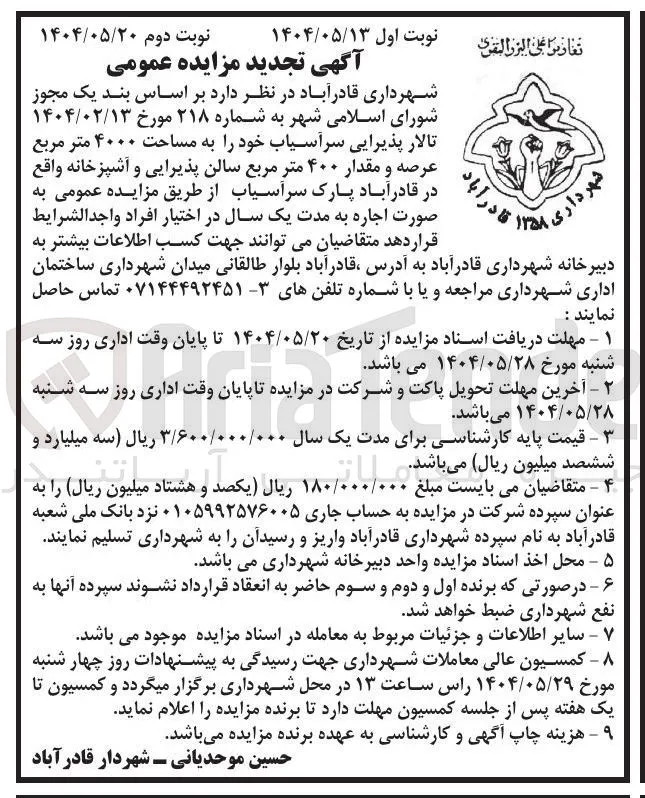 نوبت اول ۱۴۰۴/۰۵/۱۳ نوبت دوم ۱۴۰۴/۰۵/۲۰
آگهی تجدید مزایده عمومی
تعاونوا علی البر و التقوی
شهرداری قادرآباد
۱۳۵۸
شهرداری قادرآباد در نظر دارد بر اساس بند یک مجوز
شورای اسلامی شهر به شماره ۲۱۸ مورخ ۱۴۰۴/۰۲/۱۳
تالار پذیرایی سرآسیاب خود را به مساحت ۴۰۰۰ متر مربع
عرصه و مقدار ۴۰۰ متر مربع سالن پذیرایی و آشپزخانه واقع
در قادرآباد پارک سرآسیاب از طریق مزایده عمومی به
صورت اجاره به مدت یک سال در اختیار افراد واجدالشرایط
قراردهد متقاضیان می توانند جهت کسب اطلاعات بیشتر به
دبیرخانه شهرداری قادرآباد به آدرس ،قادرآباد بلوار طالقانی میدان شهرداری ساختمان
اداری شهرداری مراجعه و یا با شماره تلفن های ۳- ۰۷۱۴۴۴۹۲۴۵۱ تماس حاصل
نمایند :
۱ - مهلت دریافت اسناد مزایده از تاریخ ۱۴۰۴/۰۵/۲۰ تا پایان وقت اداری روز سه
شنبه مورخ ۱۴۰۴/۰۵/۲۸ می باشد.
۲ - آخرین مهلت تحویل پاکت و شرکت در مزایده تاپایان وقت اداری روز سه شنبه
۱۴۰۴/۰۵/۲۸ می‌باشد.
۳ - قیمت پایه کارشناسی برای مدت یک سال ۳/۶۰۰/۰۰۰/۰۰۰ ریال (سه میلیارد و
ششصد میلیون ریال) می‌باشد.
۴ - متقاضیان می بایست مبلغ ۱۸۰/۰۰۰/۰۰۰ ریال (یکصد و هشتاد میلیون ریال) را به
عنوان سپرده شرکت در مزایده به حساب جاری ۰۱۰۵۹۹۲۵۷۶۰۰۵ نزد بانک ملی شعبه
قادرآباد به نام سپرده شهرداری قادرآباد واریز و رسیدآن را به شهرداری تسلیم نمایند.
۵ - محل اخذ اسناد مزایده واحد دبیرخانه شهرداری می باشد.
۶ - درصورتی که برنده اول و دوم و سوم حاضر به انعقاد قرارداد نشوند سپرده آنها به
نفع شهرداری ضبط خواهد شد.
۷ - سایر اطلاعات و جزئیات مربوط به معامله در اسناد مزایده موجود می باشد.
۸ - کمسیون عالی معاملات شهرداری جهت رسیدگی به پیشنهادات روز چهار شنبه
مورخ ۱۴۰۴/۰۵/۲۹ راس ساعت ۱۳ در محل شهرداری برگزار میگردد و کمسیون تا
یک هفته پس از جلسه کمسیون مهلت دارد تا برنده مزایده را اعلام نماید.
۹ - هزینه چاپ آگهی و کارشناسی به عهده برنده مزایده می‌باشد.
حسین موحدیانی – شهردار قادرآباد
AriaTende